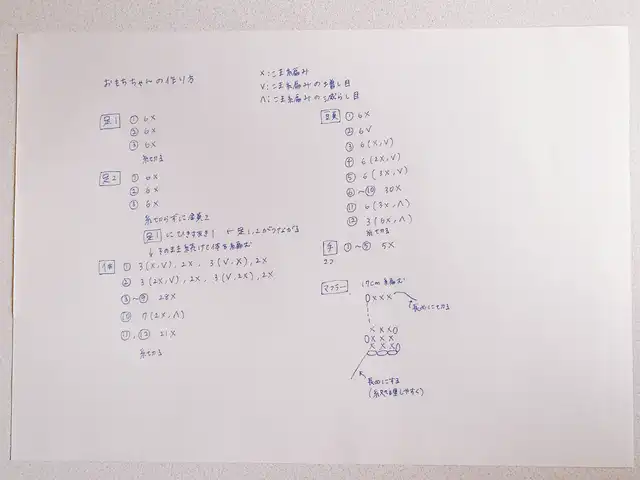 おもちちゃんの作り方
X:こま編み
V:こま編みの増し目
Λ:こま編みの減らし目
足1 ① 6X
② 6X
③ 6X
糸切る
足2 ① 6X
② 6X
③ 6X
糸切らずに
足1 にひきぬき1 ← 足1,2がつながる
↓そのまま続けて体を編む
体 ① 3(X,V),2X, 3(V,X),2X
② 3(2X,V),2X, 3(V,2X),2X
③~⑨ 28X
⑩ 7(2X,Λ)
⑪,⑫ 21X
糸切る
頭 ① 6X
② 6V
③ 6(X,V)
④ 6(2X,V)
⑤ 6(3X,V)
⑥~⑩ 30X
⑪ 6(3X,Λ)
⑫ 3(6X,Λ)
糸切る
手 ①~⑤ 5X
2コ
マフラー 17cm編む
0XXX
長めに切る
XXX0
0XXX
XXX0
長めにする